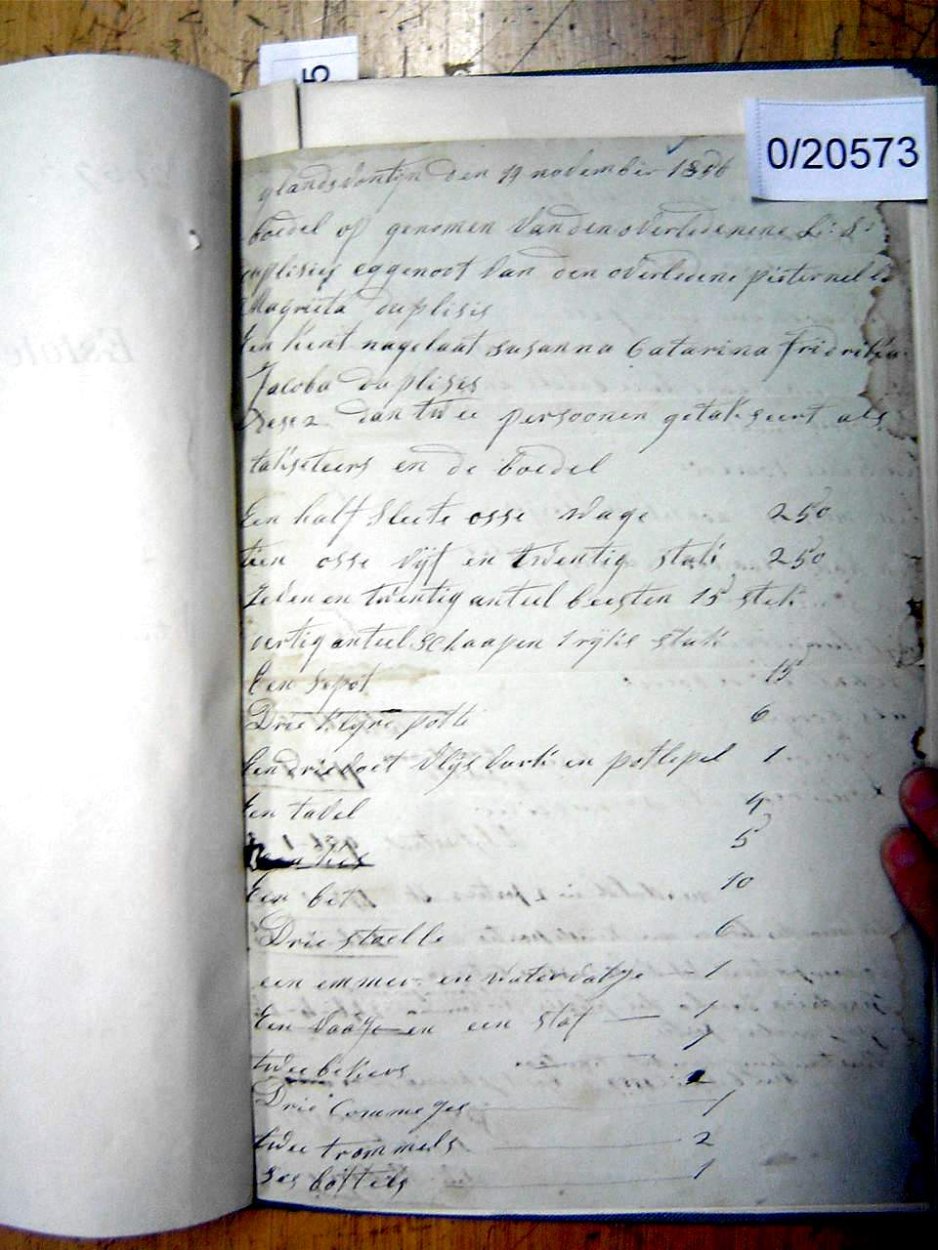 5
0/20573
glandsdontyn den 19 november 1856
boedel op genomen vanden overledenene L: S:
duplisies eggenoot van den overleene pieternella
Magrieta duplisis
Een kint nagelaat susanna Catarina Fredrika
Jacoba duplises
dan twee persoonen getakseert als
takseteurs en de boedel
Een half sleete osse wage 250
tien osse vyf en twentig stuk 250
zeven en twentig anteel beesten 15 stuk
vertig anteel schaapen 1 ryks stuk
Een sepot 15
Drie kleyne potte 6
Een drievoet vlys vurk en potlepel 1
Een tavel 4
5
Een bet 10
Drie stoelle 6
een emmer en watervatye 1
Een en een 1
twee bekers
Drie Commeges 1
twee trommels 2
ses bottels 1